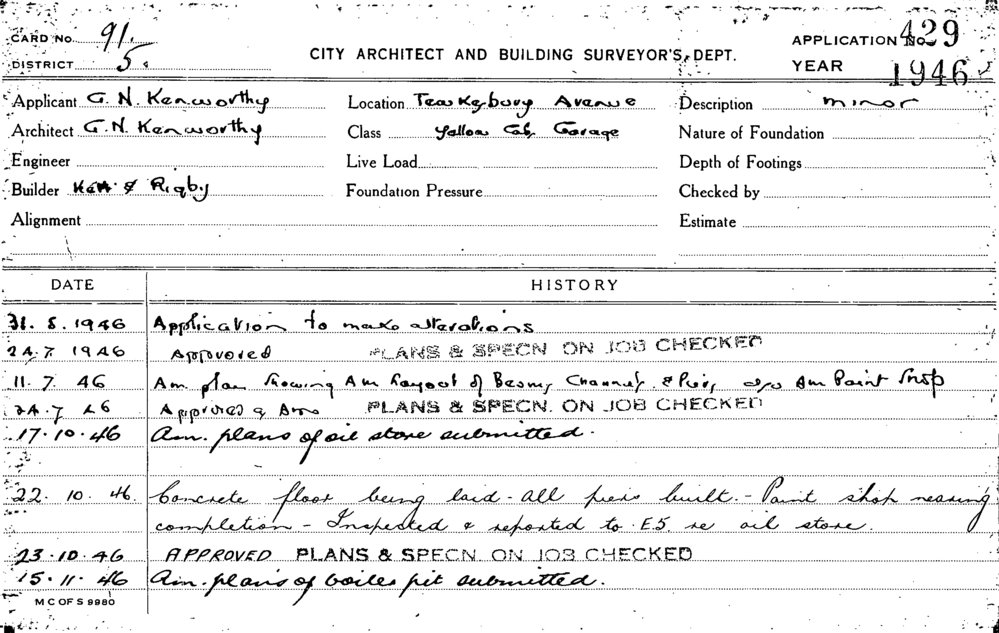 CARD No. 91.
DISTRICT 5.
CITY ARCHITECT AND BUILDING SURVEYOR'S DEPT.
APPLICATION No. 429
YEAR 1946
Applicant G. N. Kenworthy Location Tewkesbury Avenue Description minor
Architect G. N. Kenworthy Class Yellow Cab Garage Nature of Foundation
Engineer Live Load Depth of Footings
Builder & Rigby Foundation Pressure Checked by
Alignment Estimate
DATE HISTORY
31. 5. 1946 Application to make alterations
24.7 1946 Approved PLANS & SPECN ON JOB CHECKED
11. 7. 46 Am plan showing Am Layout of Beams, Channels & Piers, Am Paint Shop
24.7 46 Approved PLANS & SPECN. ON JOB CHECKED
17.10.46 Am. plans of oil store submitted.
22. 10. 46. Concrete floor being laid - all piers built. - Paint shop nearing
completion - Inspected & reported to E.S. re oil store.
23.10.46 APPROVED PLANS & SPECN. ON JOB CHECKED
15.11.46 Am. plans of boiler pit submitted.
M C OF S 9980